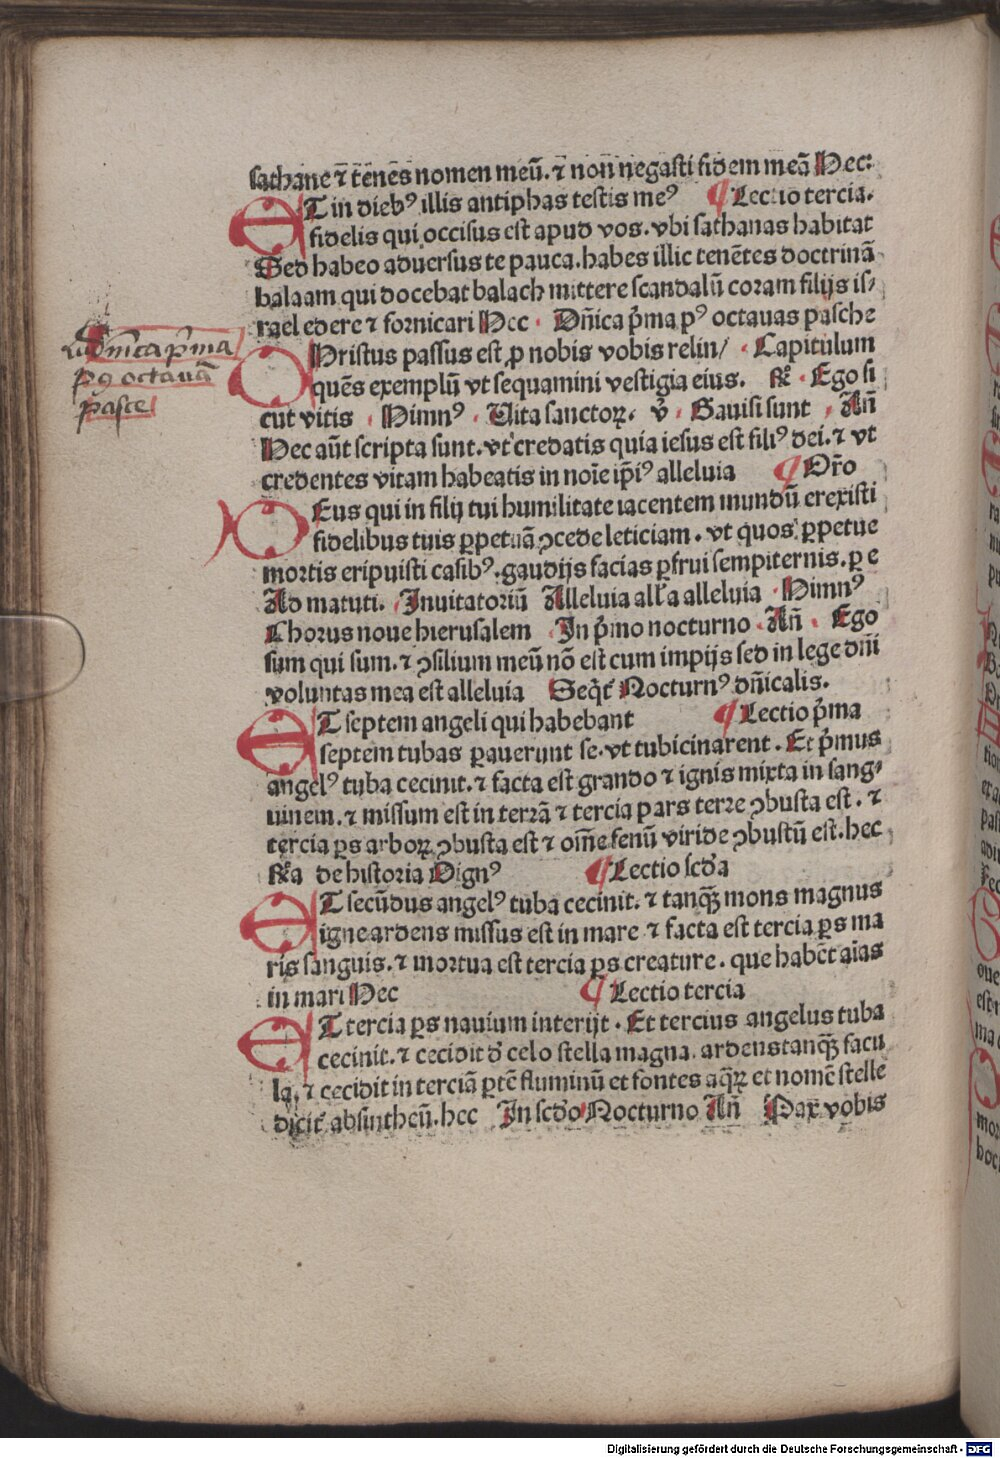 sathane ⁊ tenēs nomen meū. ⁊ non negasti fidem meā Hec:
ET in diebꝰ illis antiphas testis meꝰ ¶ Lectio tercia.
fidelis qui occisus est apud vos. vbi sathanas habitat
Sed habeo aduersus te pauca. habes illic tenētes doctrinā
balaam qui docebat balach mittere scandalū coram filijs is/
rael edere ⁊ fornicari Hec Dn̄ica p̄ma pꝰ octauas pasche
CHristus passus est ꝓ nobis vobis relin/ Capitulum
quēs exemplū vt sequamini vestigia eius. ℟ Ego si
cut vitis Himnꝰ Uita sanctoꝝ. v̄ Gauisi sunt An̄
Hec aūt scripta sunt. vt credatis quia iesus est filiꝰ dei. ⁊ vt
credentes vitam habeatis in noīe ip̄iꝰ alleluia ¶ Or̄o
DEus qui in filij tui humilitate iacentem mundū erexisti
fidelibus tuis ꝑpetuā ꝯcede leticiam. vt quos ꝑpetue
mortis eripuisti casibꝰ. gaudijs facias ꝑfrui sempiternis. ꝑ e
Ad matuti. Inuitatoriū Alleluia all'a alleluia Himnꝰ
Chorus noue hierusalem In p̄mo nocturno An̄ Ego
sum qui sum. ⁊ ꝯsilium meū nō est cum impijs sed in lege dn̄i
voluntas mea est alleluia Seqt̄ Nocturnꝰ dn̄icalis.
ET septem angeli qui habebant ¶ Lectio p̄ma
septem tubas ꝑauerunt se. vt tubicinarent. Et p̄mus
angelꝰ tuba cecinit. ⁊ facta est grando ⁊ ignis mixta in sang/
uinem. ⁊ missum est in terrā ⁊ tercia pars terre ꝯbusta est. ⁊
tercia ꝑs arboꝝ ꝯbusta est ⁊ om̄e fenū viride ꝯbustū est. hec
℟a de historia Dignꝰ ¶ Lectio scd̄a
ET secūdus angelꝰ tuba cecinit. ⁊ tanqꝫ mons magnus
igne ardens missus est in mare ⁊ facta est tercia ꝑs ma
ris sanguis. ⁊ mortua est tercia ꝑs creature. que habēt aīas
in mari Hec ¶ Lectio tercia
ET tercia ꝑs nauium interijt. Et tercius angelus tuba
cecinit. ⁊ cecidit d̄ celo stella magna. ardens tanqꝫ facu
la. ⁊ cecidit in terciā ꝑtē fluminū et fontes aqꝝ et nomē stelle
dicit̄ absintheū. hec In scd̄o Nocturno An̄ Pax vobis
dn̄ica p̄ma
pꝰ octauā
pasce
Digitalisierung gefördert durch die Deutsche Forschungsgemeinschaft - DFG